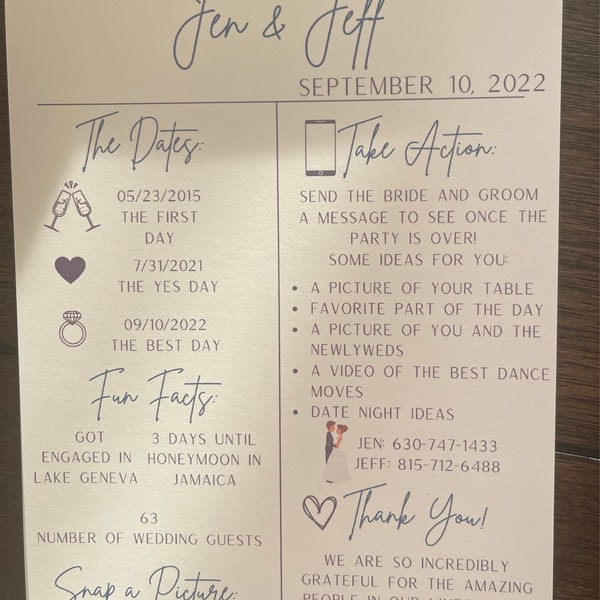 Jen & Jeff
SEPTEMBER 10, 2022
The Dates:
05/23/2015
THE FIRST
DAY
7/31/2021
THE YES DAY
09/10/2022
THE BEST DAY
Fun Facts:
GOT
ENGAGED IN
LAKE GENEVA
3 DAYS UNTIL
HONEYMOON IN
JAMAICA
63
NUMBER OF WEDDING GUESTS
Snap a Picture:
Take Action:
SEND THE BRIDE AND GROOM
A MESSAGE TO SEE ONCE THE
PARTY IS OVER!
SOME IDEAS FOR YOU:
• A PICTURE OF YOUR TABLE
• FAVORITE PART OF THE DAY
• A PICTURE OF YOU AND THE
NEWLYWEDS
• A VIDEO OF THE BEST DANCE
MOVES
• DATE NIGHT IDEAS
JEN: 630-747-1433
JEFF: 815-712-6488
Thank You!
WE ARE SO INCREDIBLY
GRATEFUL FOR THE AMAZING
PEOPLE IN OUR